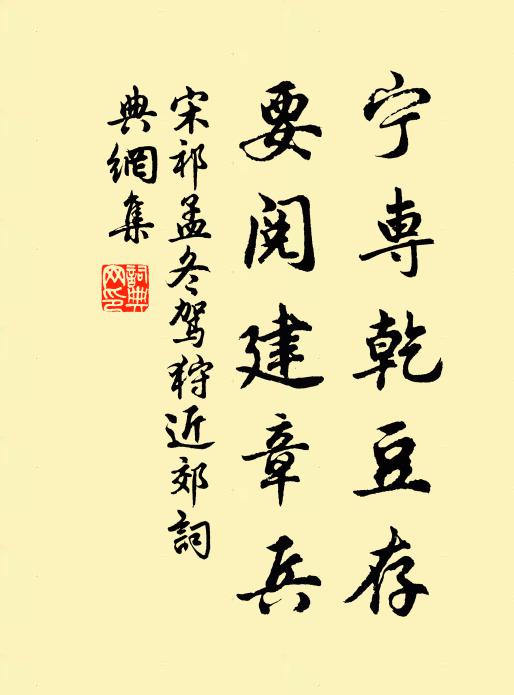 宁専乾豆存
要閱建章兵
宋祁孟冬驾狩近郊詞
典網集
詞典网印